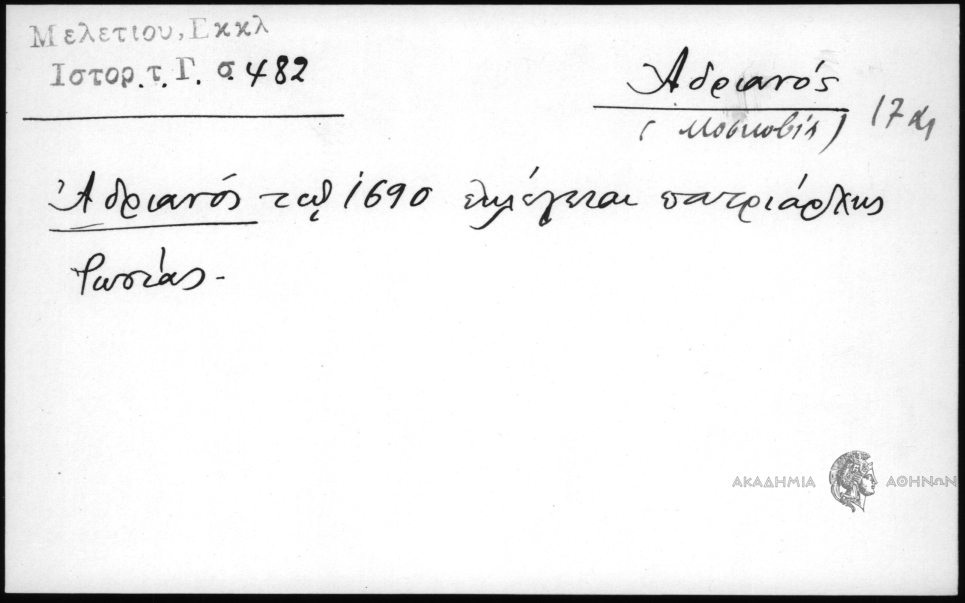 Μελετίου, Εκκλ
Ιστορ. τ. Γ. σ. 482
Ἀδριανός
(Μοσκοβία) 17 αι
Ἀδριανός τῷ 1690 ἐκλέγεται πατριάρχης
Ρωσίας -
ΑΚΑΔΗΜΙΑ ΑΘΗΝΩΝ